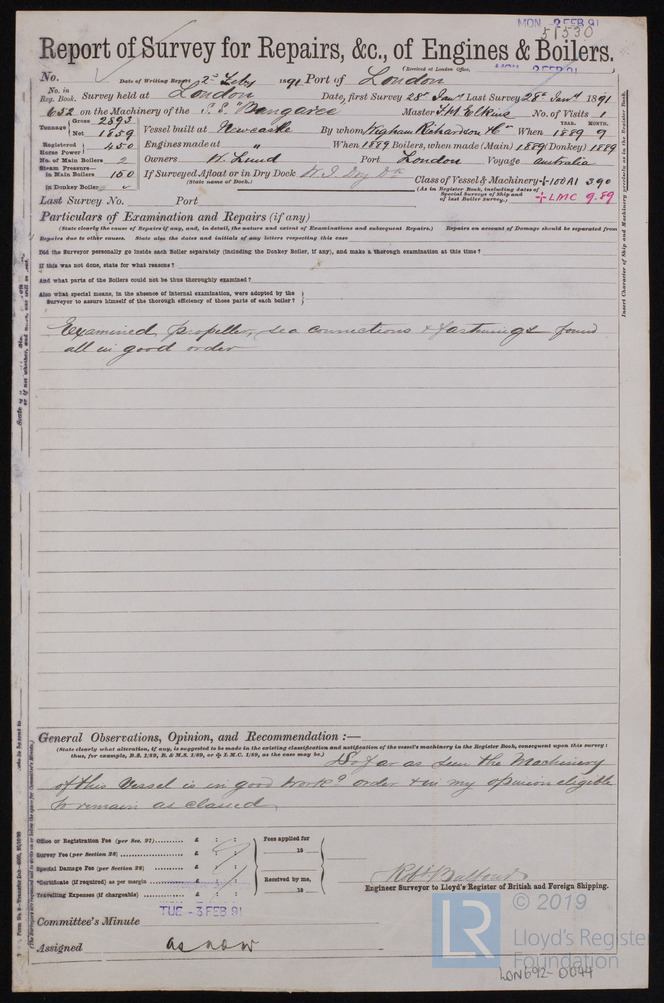 MON 2 FEB 91
51530
Report of Survey for Repairs, &c., of Engines & Boilers.
(Received at London Office,
MON 2 FEB 91
No. Date of Writing Report 2d Feby 1891 Port of London
No. in Reg. Book. Survey held at London Date, first Survey 28th Jany Last Survey 28th Jany 1891
652 on the Machinery of the S.S. "Bungaree" Master Elkins No. of Visits 1
Tonnage Gross 2893 Net 1859 Vessel built at Newcastle By whom Wigham Richardson & Co When YEAR. 1889 MONTH. 9
Registered Horse Power 450 Engines made at " When 1889 Boilers, when made (Main) 1889 (Donkey) 1889
No. of Main Boilers 2 Owners W. Lund Port London Voyage Australia
Steam Pressure— in Main Boilers 150 If Surveyed Afloat or in Dry Dock W. I. Dry Dk Class of Vessel & Machinery ✠ 100A1 3 90
(State name of Dock.) (As in Register Book, including dates of Special Surveys of Ship and of last Boiler Survey.) ✠ LMC 9.89
in Donkey Boiler
Last Survey No. Port
Particulars of Examination and Repairs (if any)
(State clearly the cause of Repairs if any, and, in detail, the nature and extent of Examinations and subsequent Repairs.) Repairs on account of Damage should be separated from
Repairs due to other causes. State also the dates and initials of any letters respecting this case
Did the Surveyor personally go inside each Boiler separately (including the Donkey Boiler, if any), and make a thorough examination at this time?
If this was not done, state for what reasons?
And what parts of the Boilers could not be thus thoroughly examined?
Also what special means, in the absence of internal examination, were adopted by the
Surveyor to assure himself of the thorough efficiency of those parts of each boiler?
Examined propeller, sea connections & fastenings found
all in good order
Insert Character of Ship and Machinery precisely as in the Register Book.
General Observations, Opinion, and Recommendation :—
(State clearly what alteration, if any, is suggested to be made in the existing classification and notification of the vessel's machinery in the Register Book, consequent upon this survey :
thus, for example, B.S. 1/89, B. & M.S. 1/89, or ✠ L.M.C. 1/89, as the case may be.)
So far as seen the Machinery
of this Vessel is in good workg order & in my opinion eligible
to remain as classed
Office or Registration Fee (per Sec. 27) £ : :
Survey Fee (per Section 28) £ : :
Special Damage Fee (per Section 28) £ : :
*Certificate (if required) as per margin £ : :
Travelling Expenses (if chargeable) £ : :
Fees applied for
18
Received by me,
18
Robt Balfour
Engineer Surveyor to Lloyd's Register of British and Foreign Shipping.
TUE - 3 FEB 91
Committee's Minute
Assigned as now
© 2019
LR
Lloyd's Register
Foundation
LON692-0044